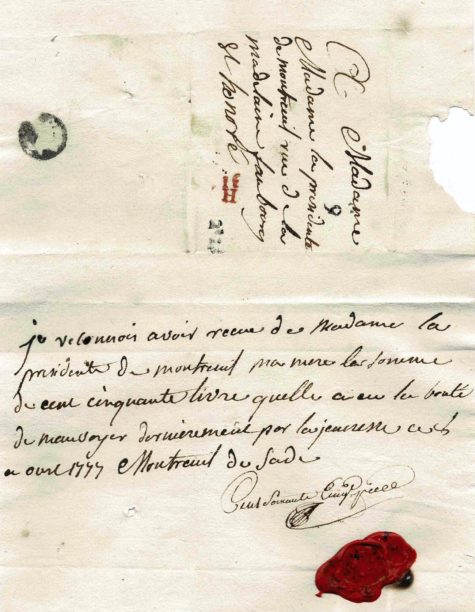 A Madame
Madame la presidente
de montreuil rue de la
madelaine faubourg
St honoré
je reconnois avoir recue de Madame la
présidente de montreuil ma mere la somme
de cent cinquante livre quelle a eu la bonté
de mauvoyer dernièrement par la jeunesse ce 6
avril 1777 Montreuil de Sade
Cent Soixante Cinq